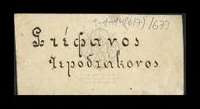 Στέφανος
Ιεροδιάκονος